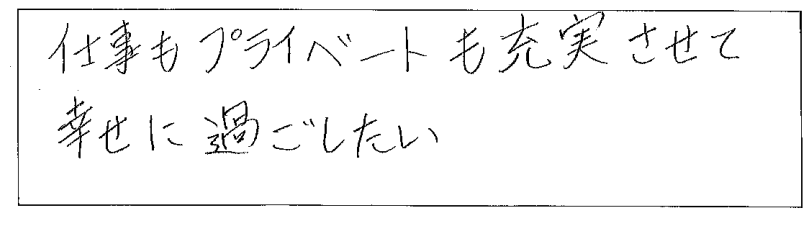 仕事もプライベートも充実させて
幸せに過ごしたい